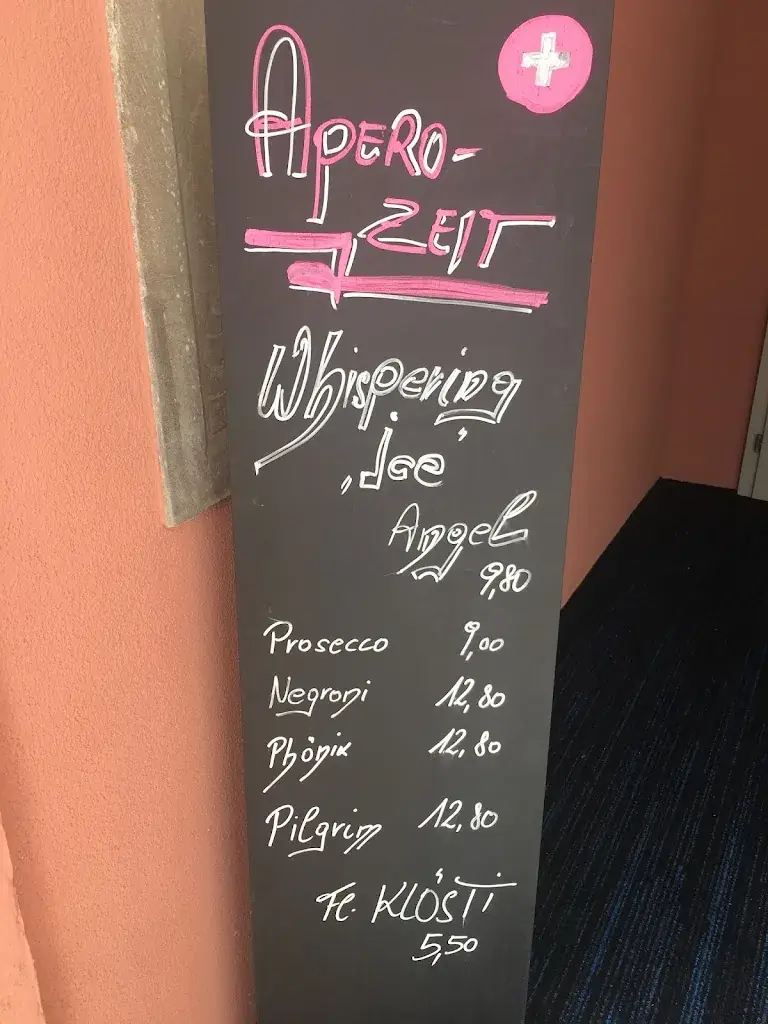 APERO-
ZEIT
Whispering
"Ice"
Angel
9,80
Prosecco 9,00
Negroni 12,80
Phönix 12,80
Pilgrim 12,80
Fl. KLÖSTI
5,50